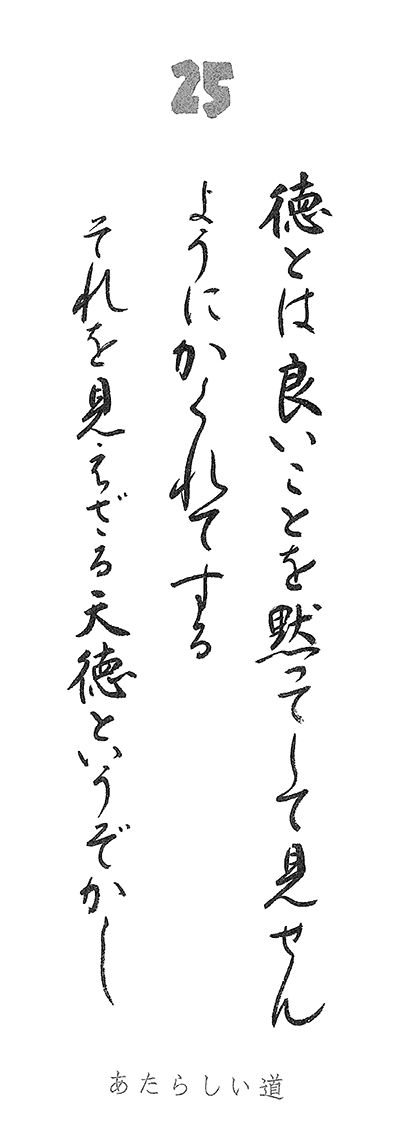 25
徳とは良いことを黙ってして見せん
ようにかくれてする
それを見えざる天徳というぞかし
あたらしい道